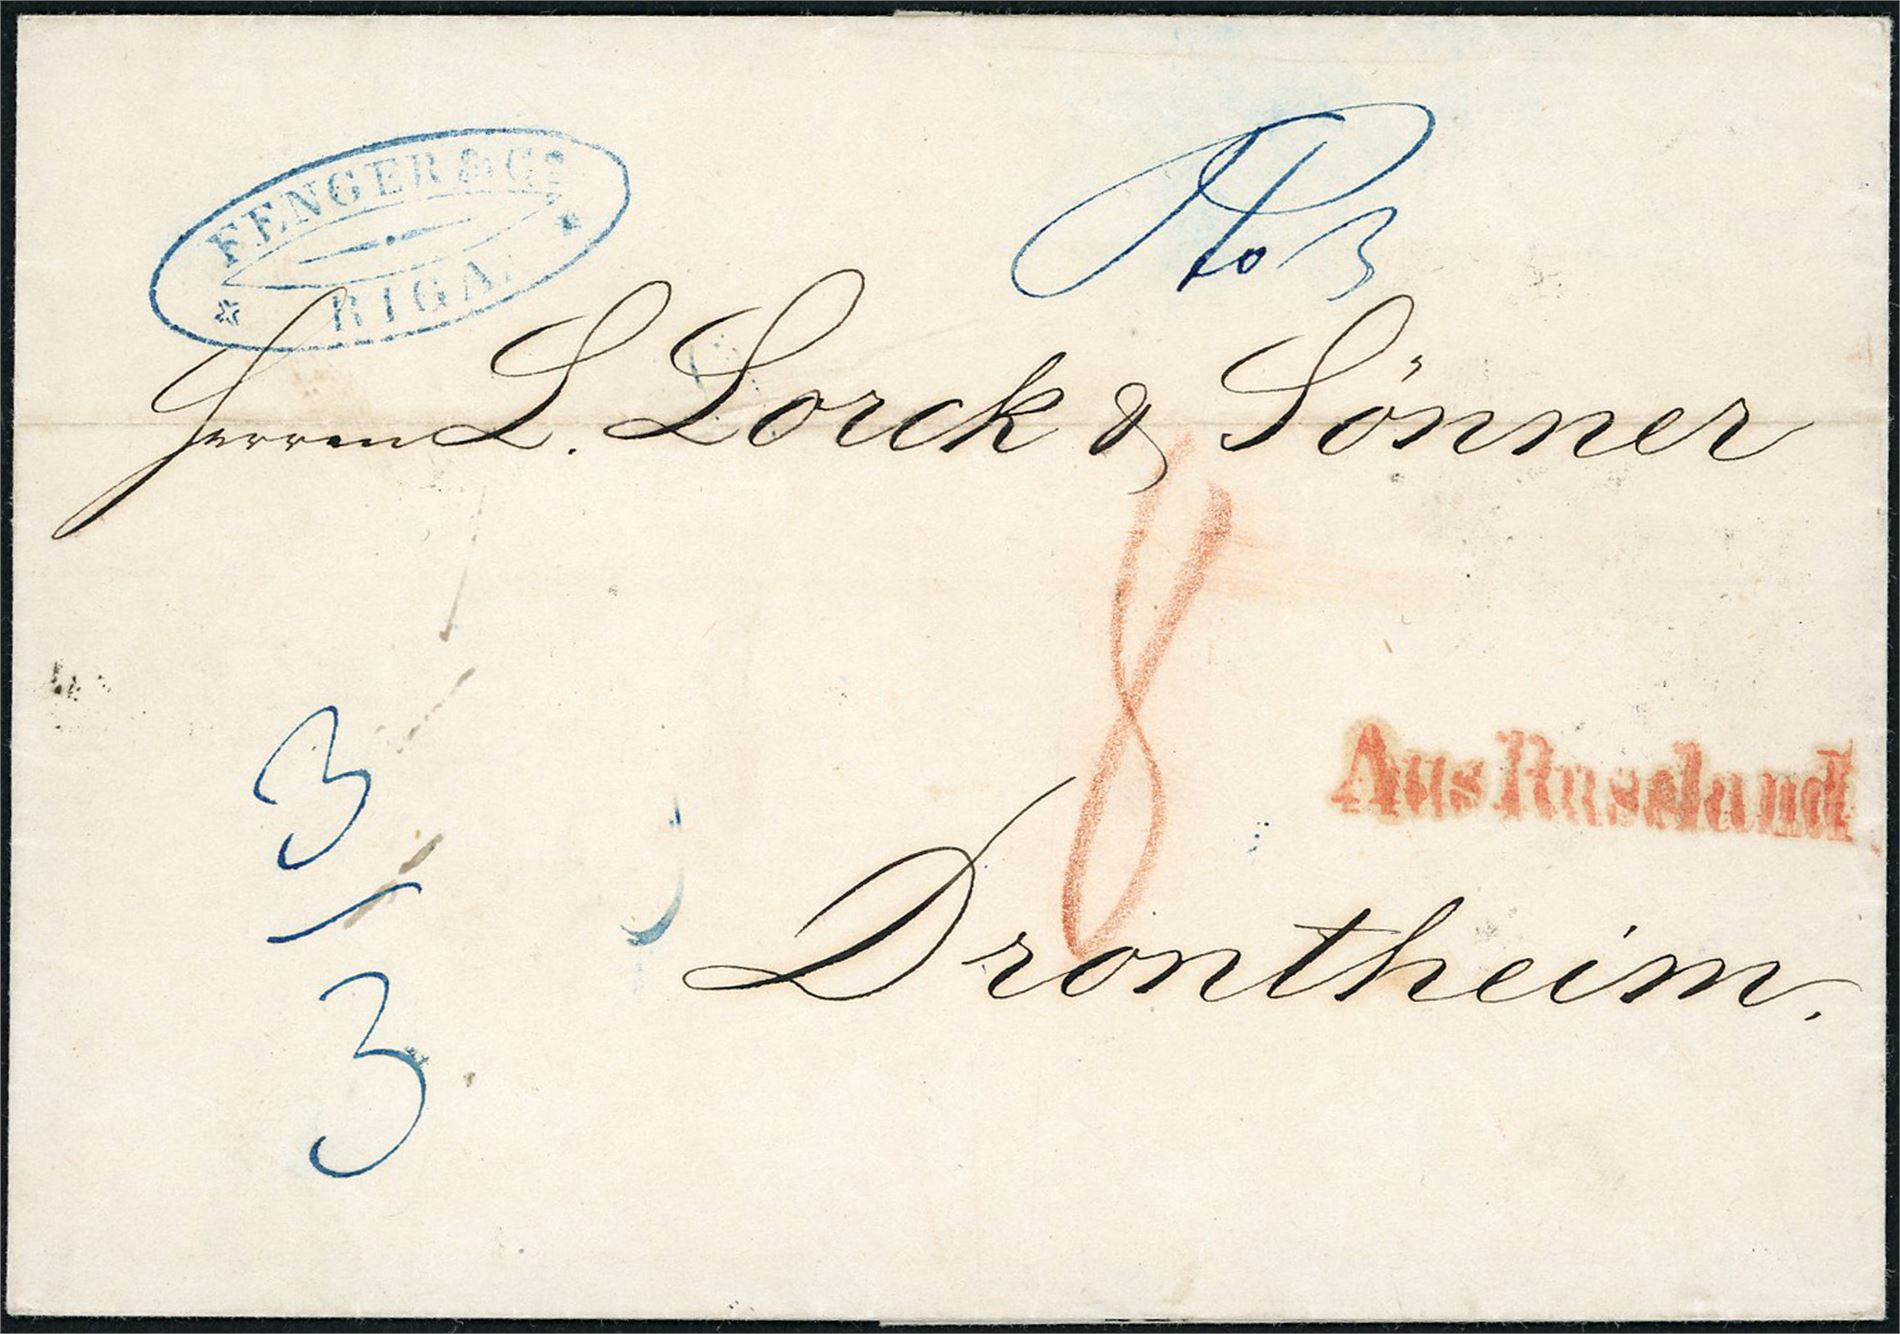 FENGER & Co
RIGA.
3
Herren L. Lorck & Sönner
8
Aus Russland
3
3
Drontheim.